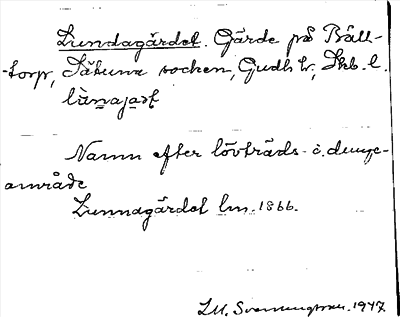 Lundagärdet. Gärde på Bäll-
torp, Säby socken, Gudh. hr, Skb. l.
lùnajaʃt
Namn efter lövträds- o. dunge-
område
Lunnagärdet lm. 1866.
1947